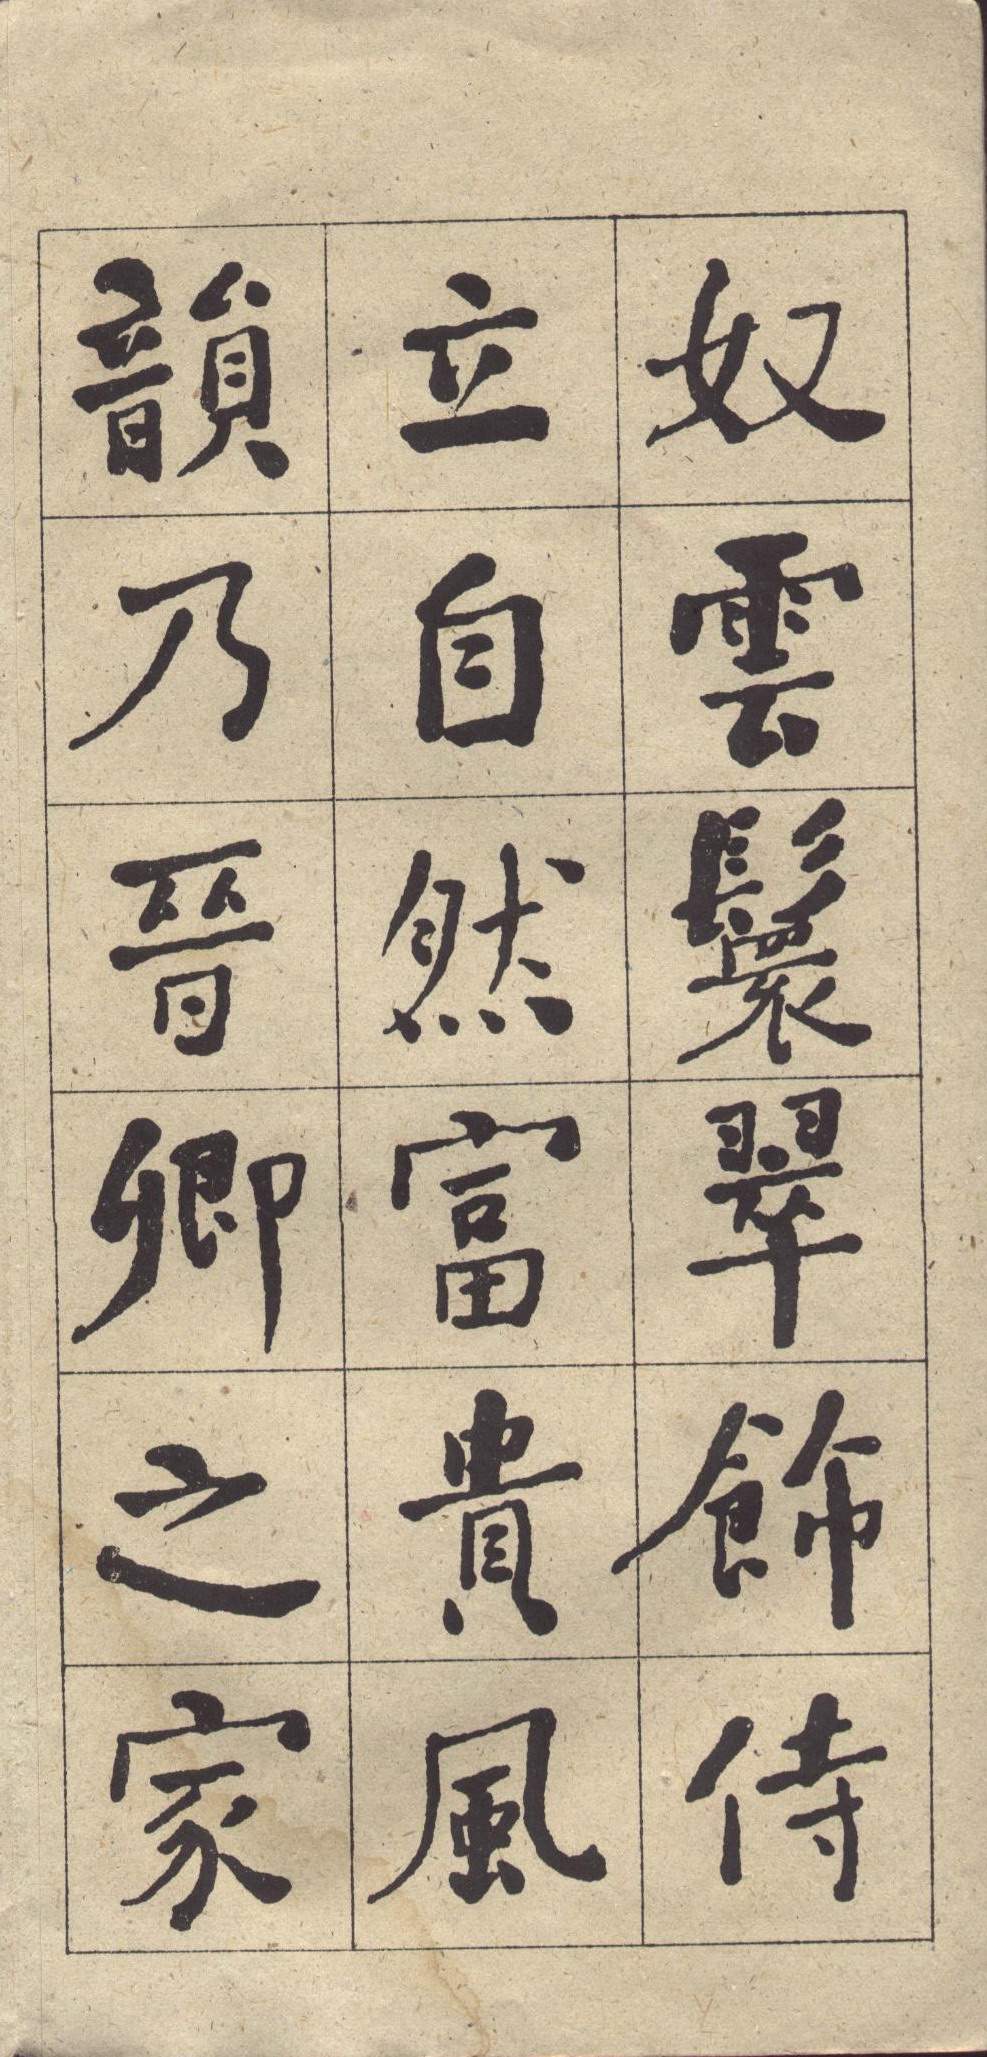 奴雲鬟翠飾侍
立自然富貴風
韻乃晉卿之家